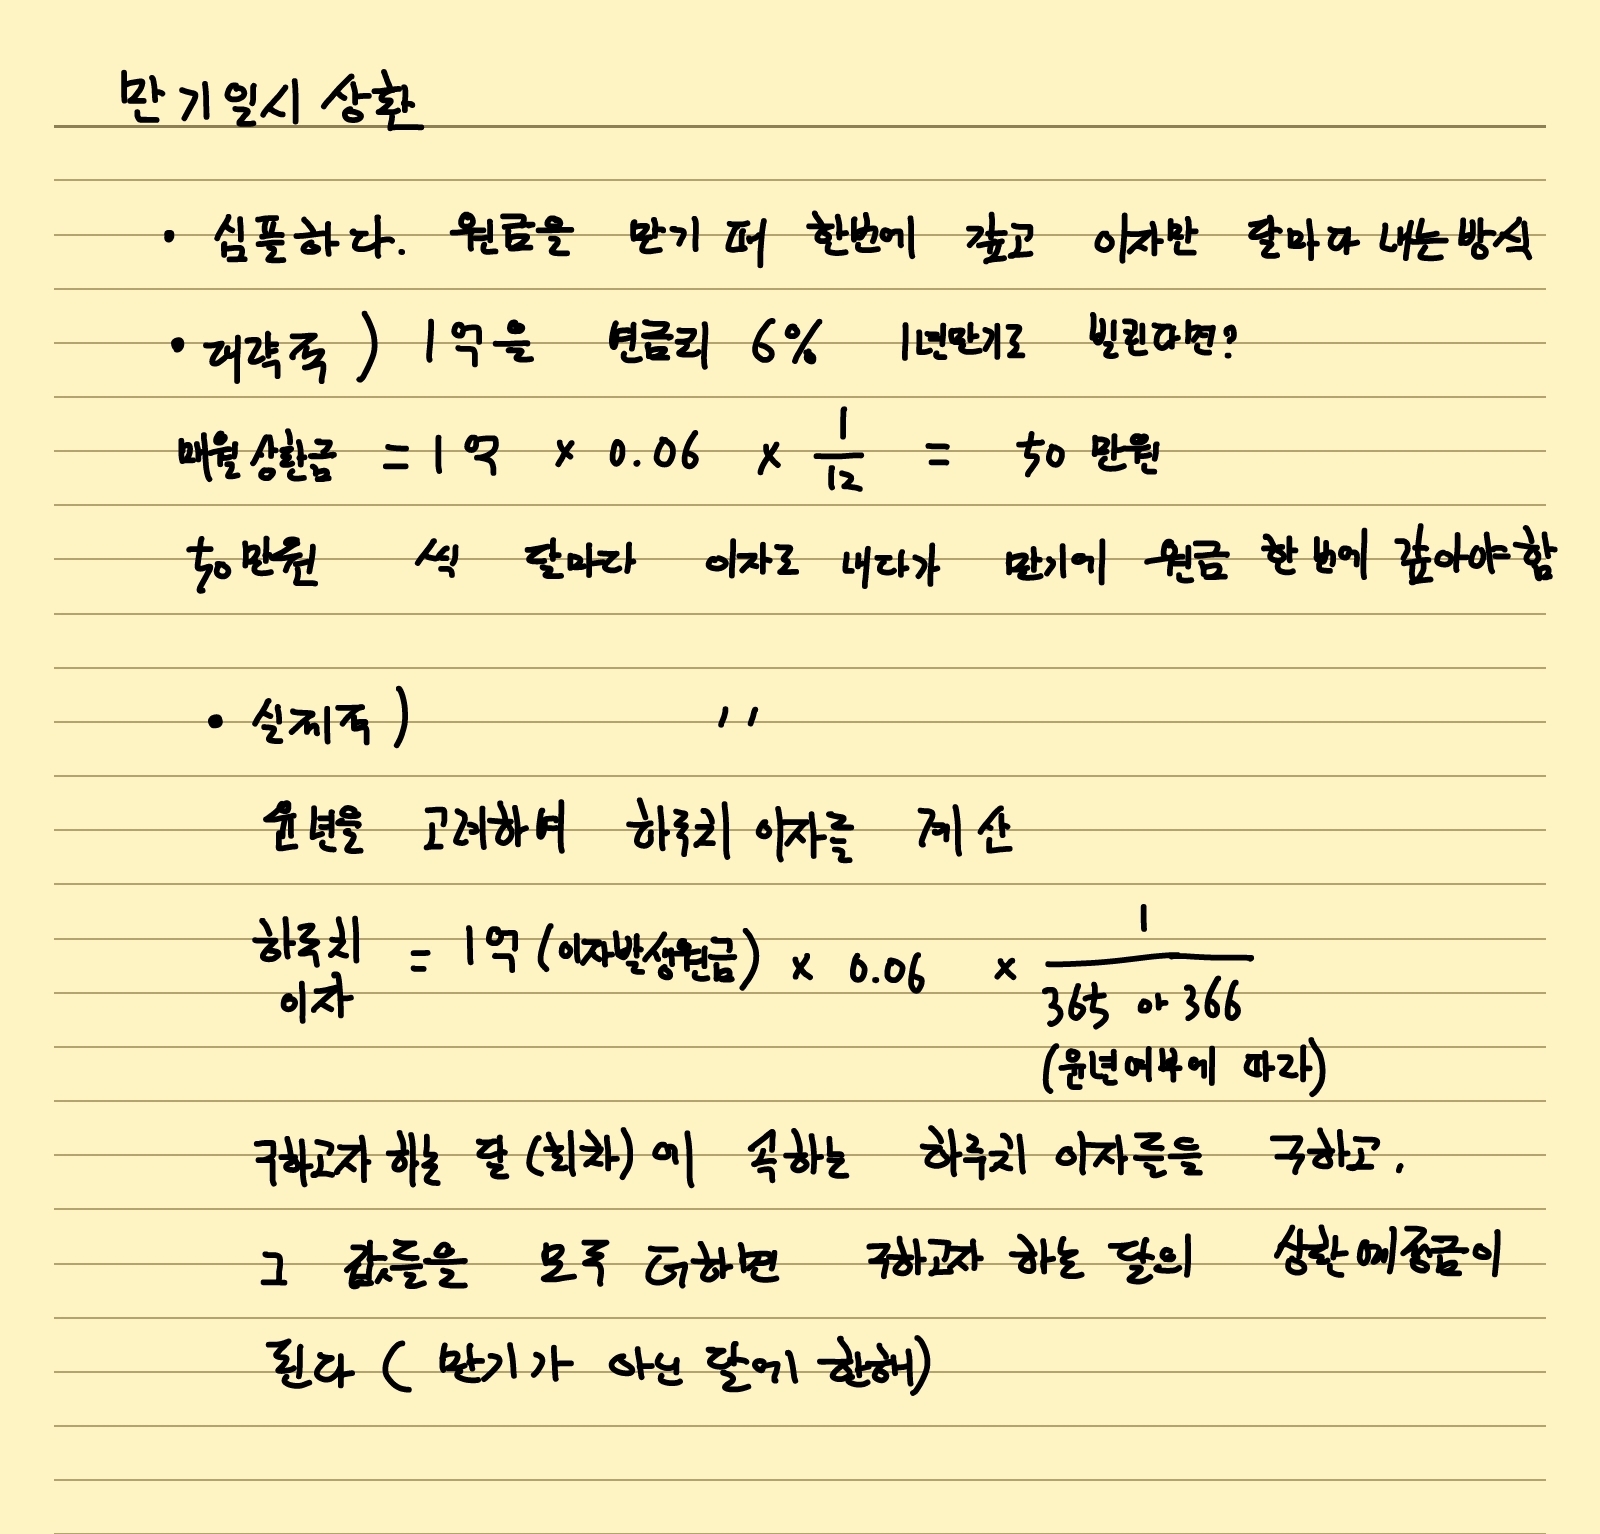 만기일시 상환
• 심플하다. 원금을 만기 때 한번에 갚고 이자만 달마다 내는 방식
• 대략적) 1억을 연금리 6% 1년만기로 빌린다면?
매월 상환금 = 1억 × 0.06 × 1/12 = 50 만원
50만원 씩 달마다 이자로 내다가 만기에 원금 한 번에 갚아야 함
• 실제적) ''
윤년을 고려하며 하루치 이자를 계산
하루치 이자 = 1억 (이자발생원금) × 0.06 × 1/365 or 366
(윤년여부에 따라)
구하고자 하는 달 (회차) 에 속하는 하루치 이자들을 구하고,
그 값들을 모두 더하면 구하고자 하는 달의 상환예정금이
된다 ( 만기가 아닌 달에 한해)